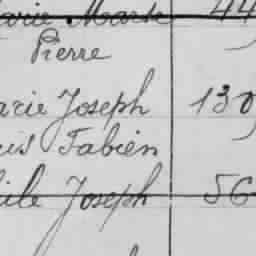 arie Marie 44
Pierre
arie Joseph 130
uis Fabien
ile Joseph 56